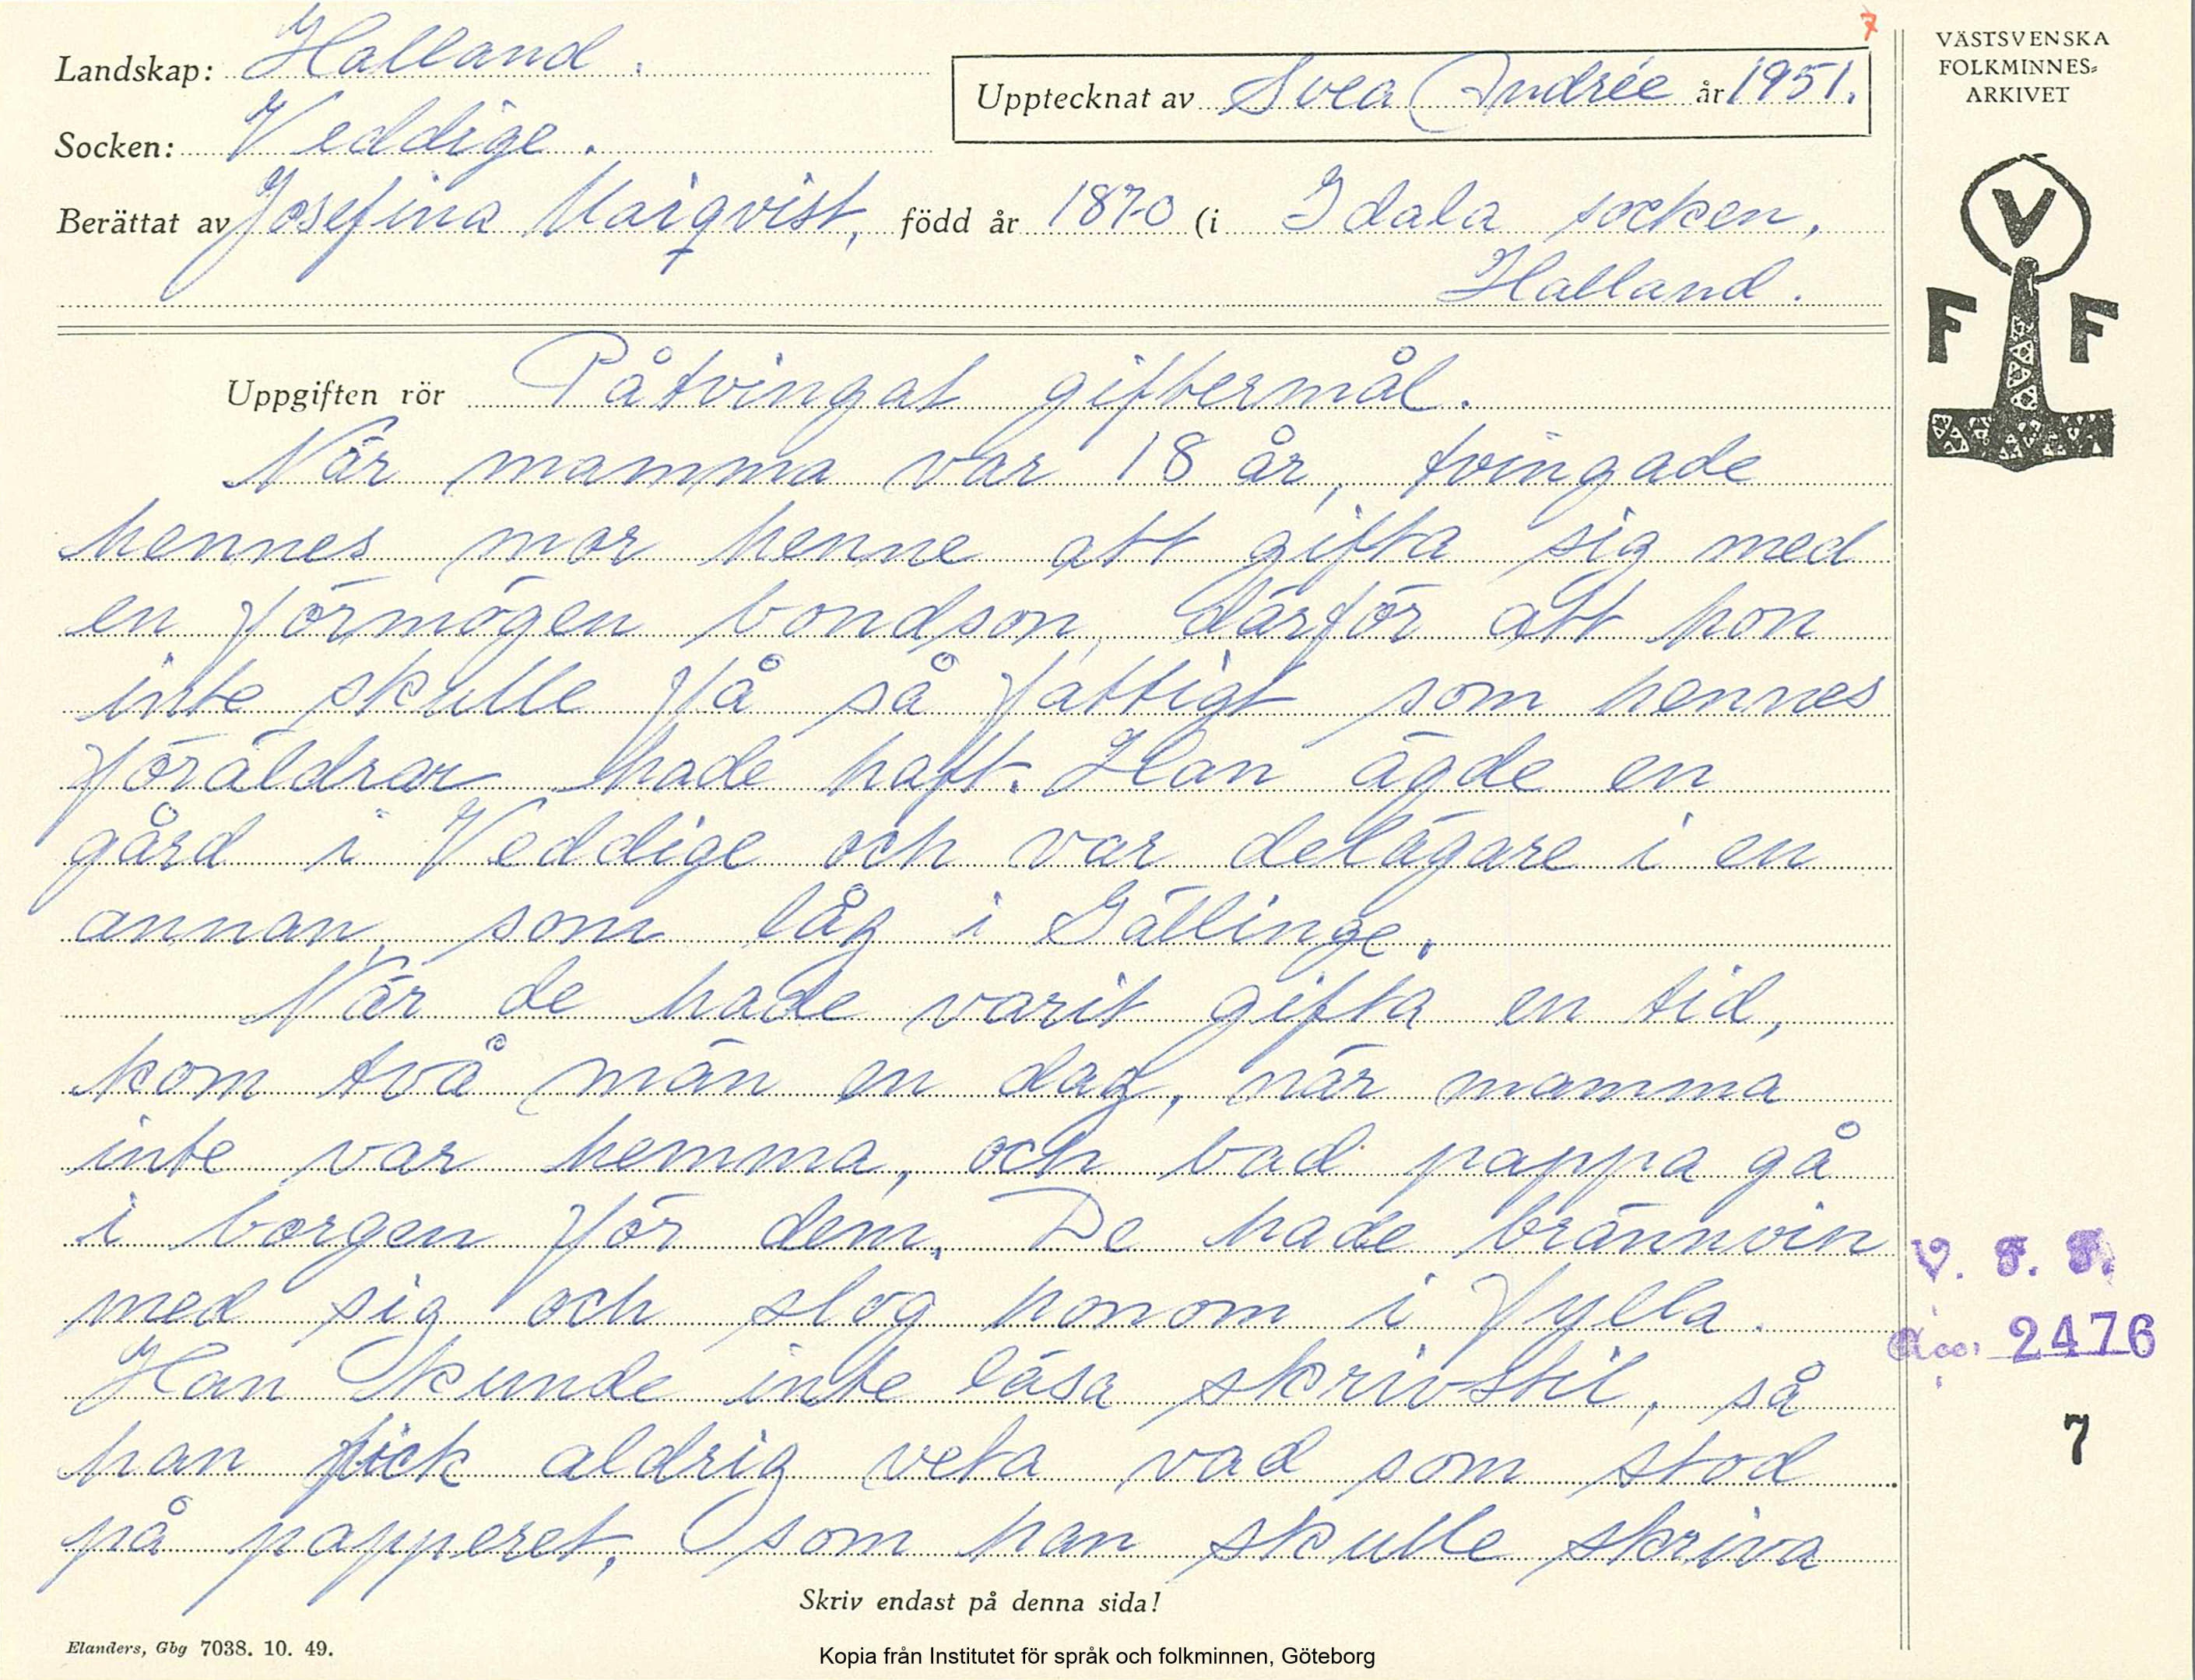 7
Landskap: Halland.
Upptecknat av Svea Andrée år 1951.
Socken: Veddige.
Berättat av Josefina född år 1870 (i Idala socken,
Halland.
Uppgiften rör Påtvingat giftermål.
När mamma var 18 år, tvingade
hennes mor henne att gifta sig med
en förmögen bondson, därför att hon
inte skulle få så fattigt som hennes
föräldrar hade haft. Han ägde en
gård i Veddige och var delägare i en
annan, som låg i Gällinge.
När de hade varit gifta en tid,
kom två män en dag, när mamma
inte var hemma, och bad pappa gå
i borgen för dem. De hade brännvin
med sig och slog honom i fylla.
Han kunde inte läsa skrivstil, så
han fick aldrig veta vad som stod
på papperet, som han skulle skriva
Skriv endast på denna sida!
Elanders, Gbg 7038. 10. 49.
VÄSTSVENSKA
FOLKMINNES=
ARKIVET
V
F F
V. F. F.
Acc. 2476
7
Kopia från Institutet för språk och folkminnen, Göteborg